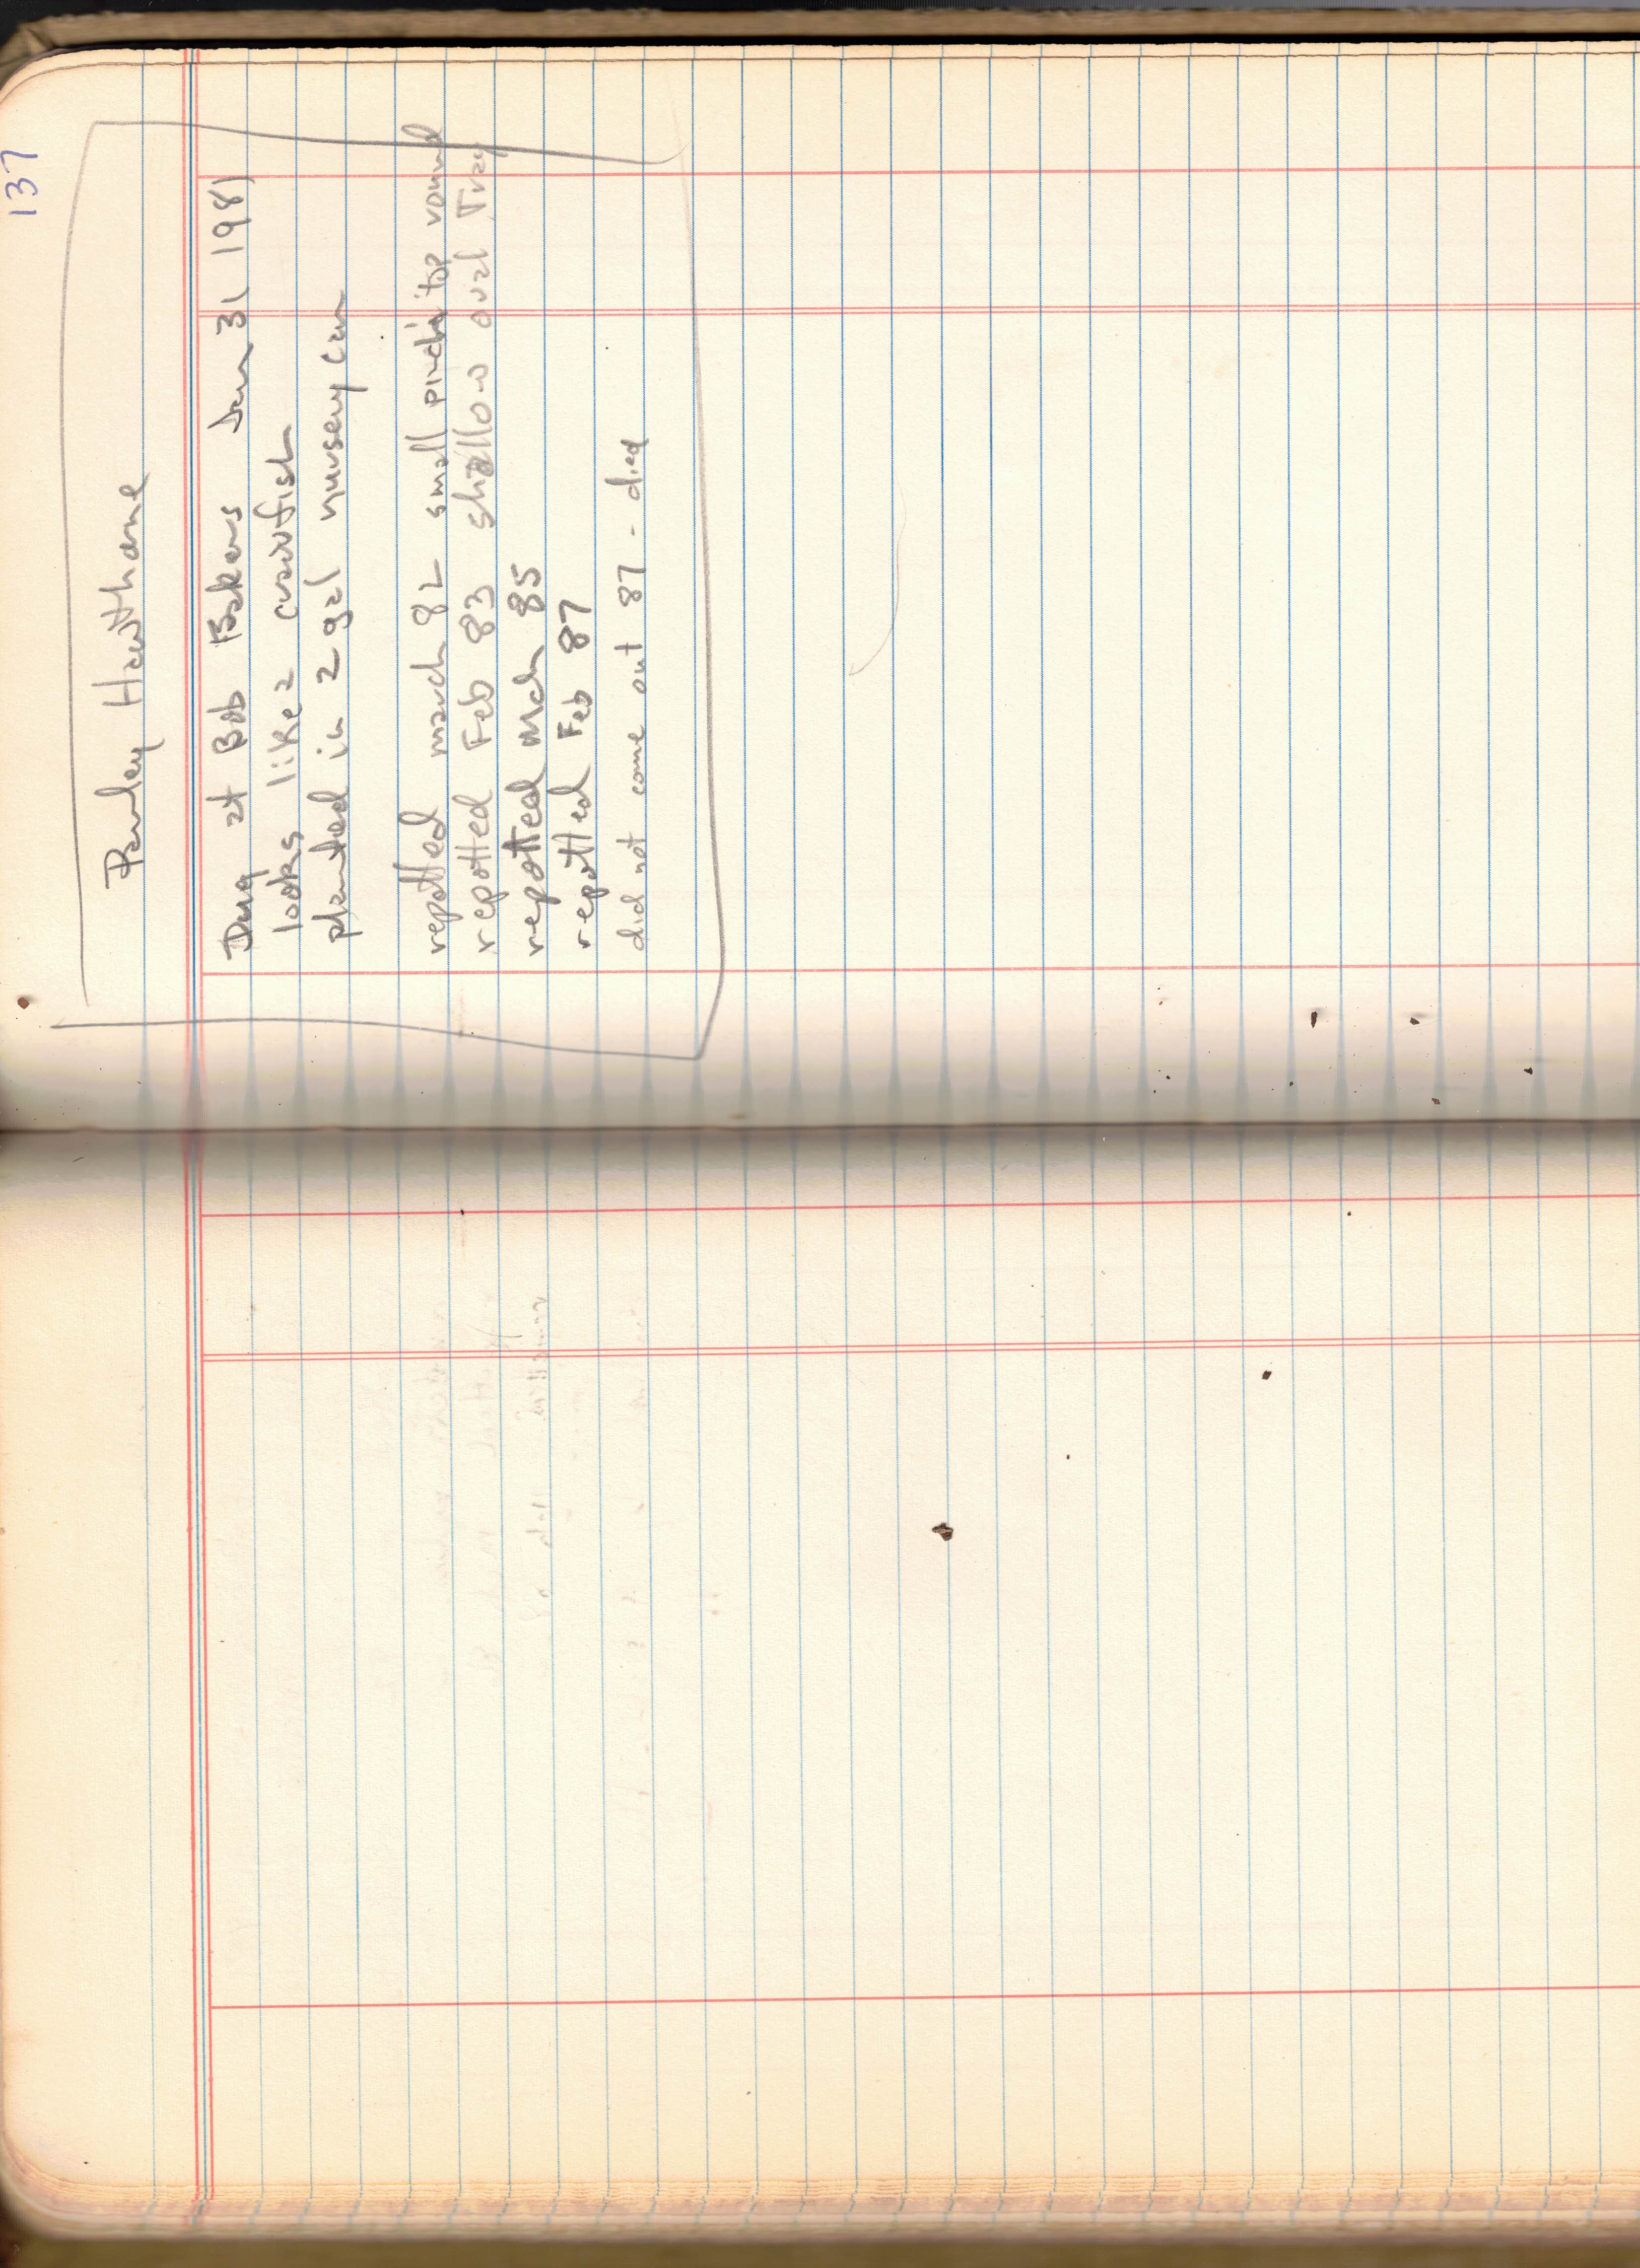 137
Parsley Hawthorne
Dug at Bob Bakers Jan 31 1981
looks like a crawfish
planted in 2 gal nursery can
repotted march 82 small pinch'd top round
repotted Feb 83 shallow oval Tray
repotted Mch 85
repotted Feb 87
did not come out 87 - died